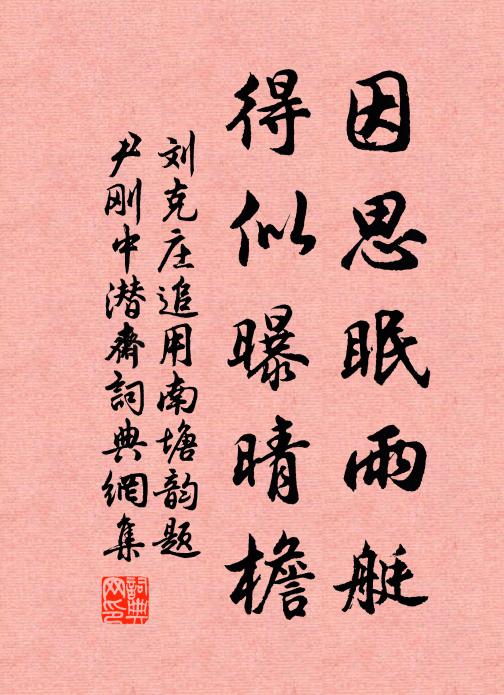 因思眠雨艇
得似曝晴檐
刘克庄追用南塘韵题
尹刚中潜斋詞典網集
詞典网印